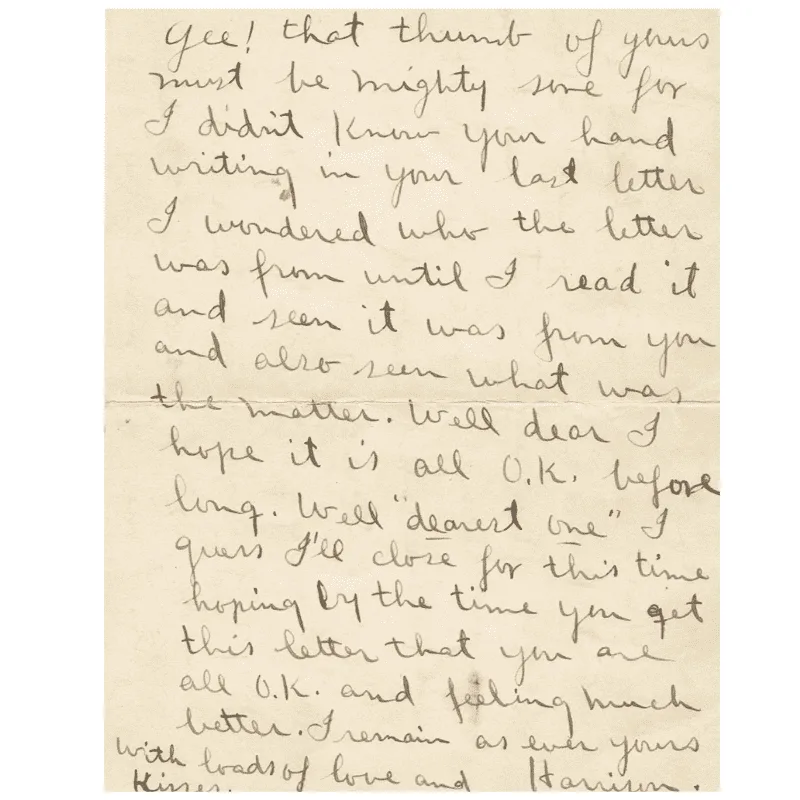 Gee! that thumb of yours
must be mighty sore for
I didn't know your hand
writing in your last letter
I wondered who the letter
was from until I read it
and seen it was from you
and also seen what was
the matter. Well dear I
hope it is all O.K. before
long. Well "dearest one" I
guess I'll close for this time
hoping by the time you get
this letter that you are
all O.K. and feeling much
better. I remain as ever yours
with loads of love and Harrison.
Kisses.